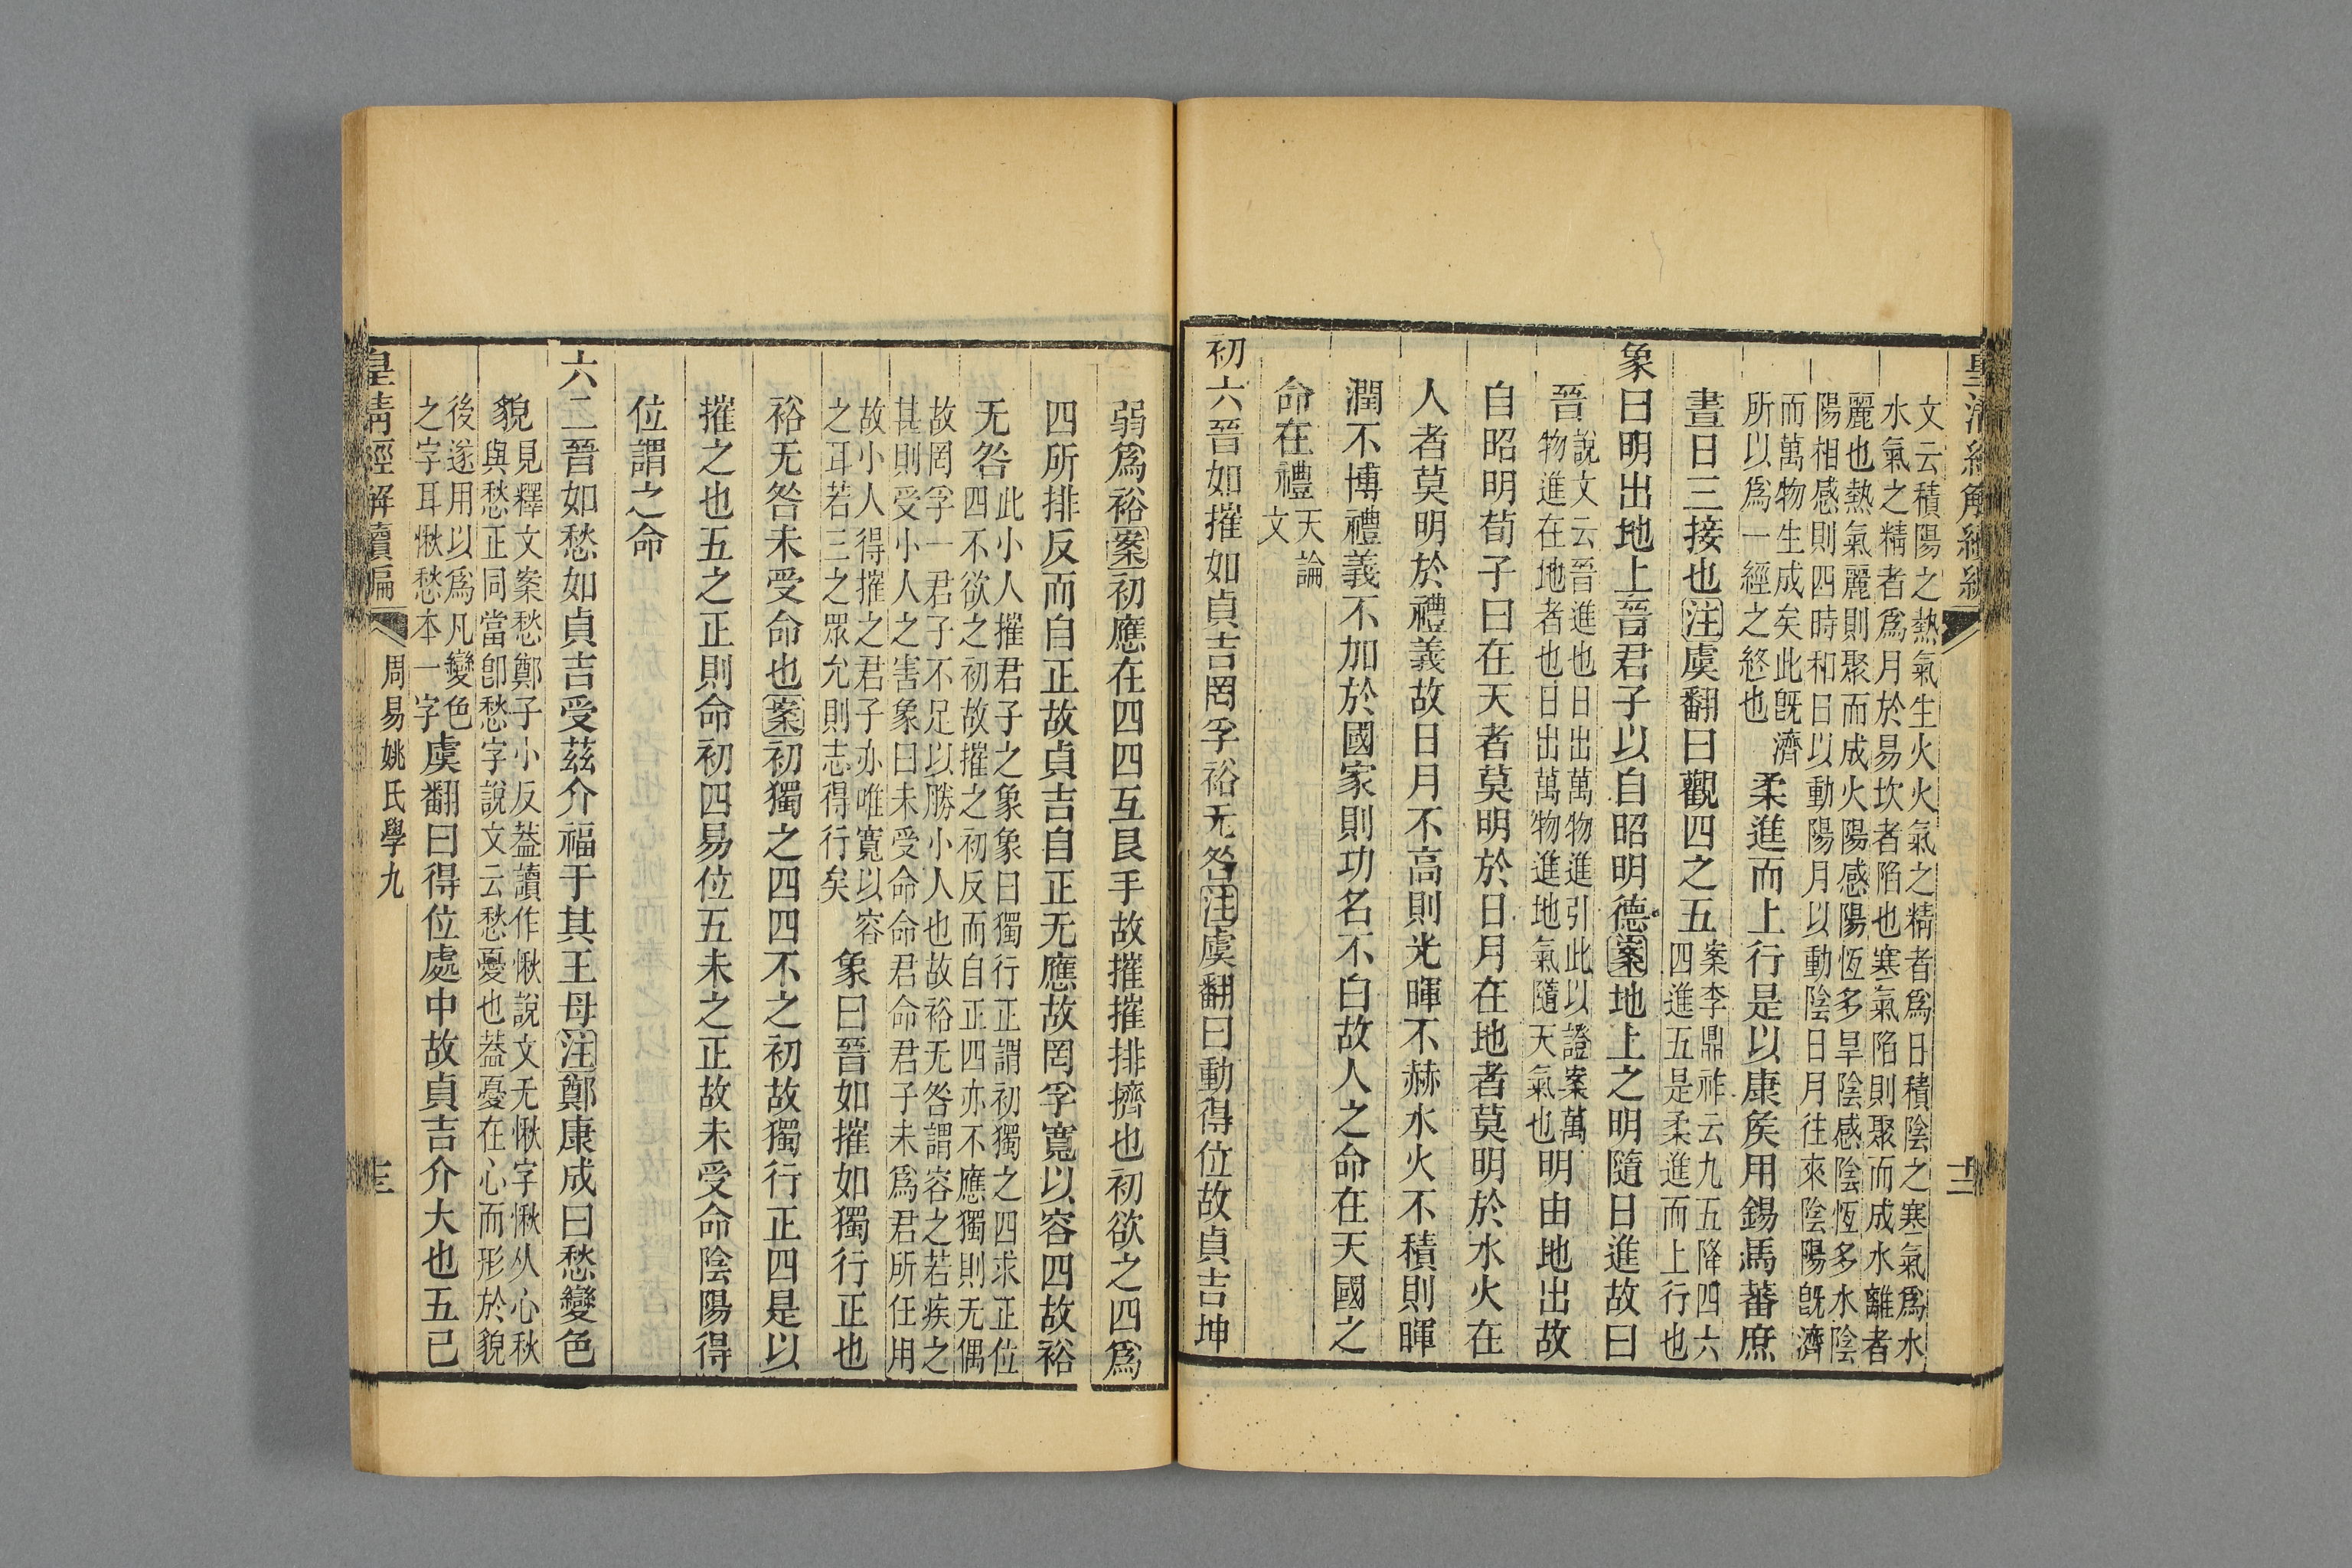 文云積陽之熱氣生火火氣之精者爲日積陰之寒氣爲水
水氣之精者爲月於易坎者陷也寒氣陷則聚而成水離者
麗也熱氣麗則聚而成火陽感陽恆多旱陰感陰恆多水陰
陽相感則四時和日以動陽月以動陰日月往來陰陽旣濟
而萬物生成矣此旣濟
所以爲一經之終也
柔進而上行是以康矦用錫馬蕃庶
晝日三接也注虞翻曰觀四之五
案李鼎祚云九五降四六
四進五是柔進而上行也
象曰明出地上晉君子以自昭明德案地上之明隨日進故曰
晉
說文云晉進也日出萬物進引此以證案萬
物進在地者也日出萬物進地氣隨天氣也
明由地出故
自昭明荀子曰在天者莫明於日月在地者莫明於水火在
人者莫明於禮義故日月不高則光暉不赫水火不積則暉
潤不博禮義不加於國家則功名不白故人之命在天國之
命在禮
天論
文
初六晉如摧如貞吉罔孚裕无咎注虞翻曰動得位故貞吉坤
弱爲裕案初應在四四互艮手故摧摧排擠也初欲之四爲
四所排反而自正故貞吉自正无應故罔孚寬以容四故裕
无咎
此小人摧君子之象象曰獨行正謂初獨之四求正位
四不欲之初故摧之初反而自正四亦不應獨則无偶
故罔孚一君子不足以勝小人也故裕无咎謂容之若疾之
甚則受小人之害象曰未受命命君命君子未爲君所任用
故小人得摧之君子亦唯寬以容
之耳若三之眾允則志得行矣
象曰晉如摧如獨行正也
裕无咎未受命也案初獨之四四不之初故獨行正四是以
摧之也五之正則命初四易位五未之正故未受命陰陽得
位謂之命
六二晉如愁如貞吉受茲介福于其王母注鄭康成曰愁變色
貌
見釋文案愁鄭子小反葢讀作愀說文无愀字愀从心秋
與愁正同當卽愁字說文云愁憂也葢憂在心而形於貌
後遂用以爲凡變色
之字耳愀愁本一字
虞翻曰得位處中故貞吉介大也五已
皇清經解續編
周易姚氏學九